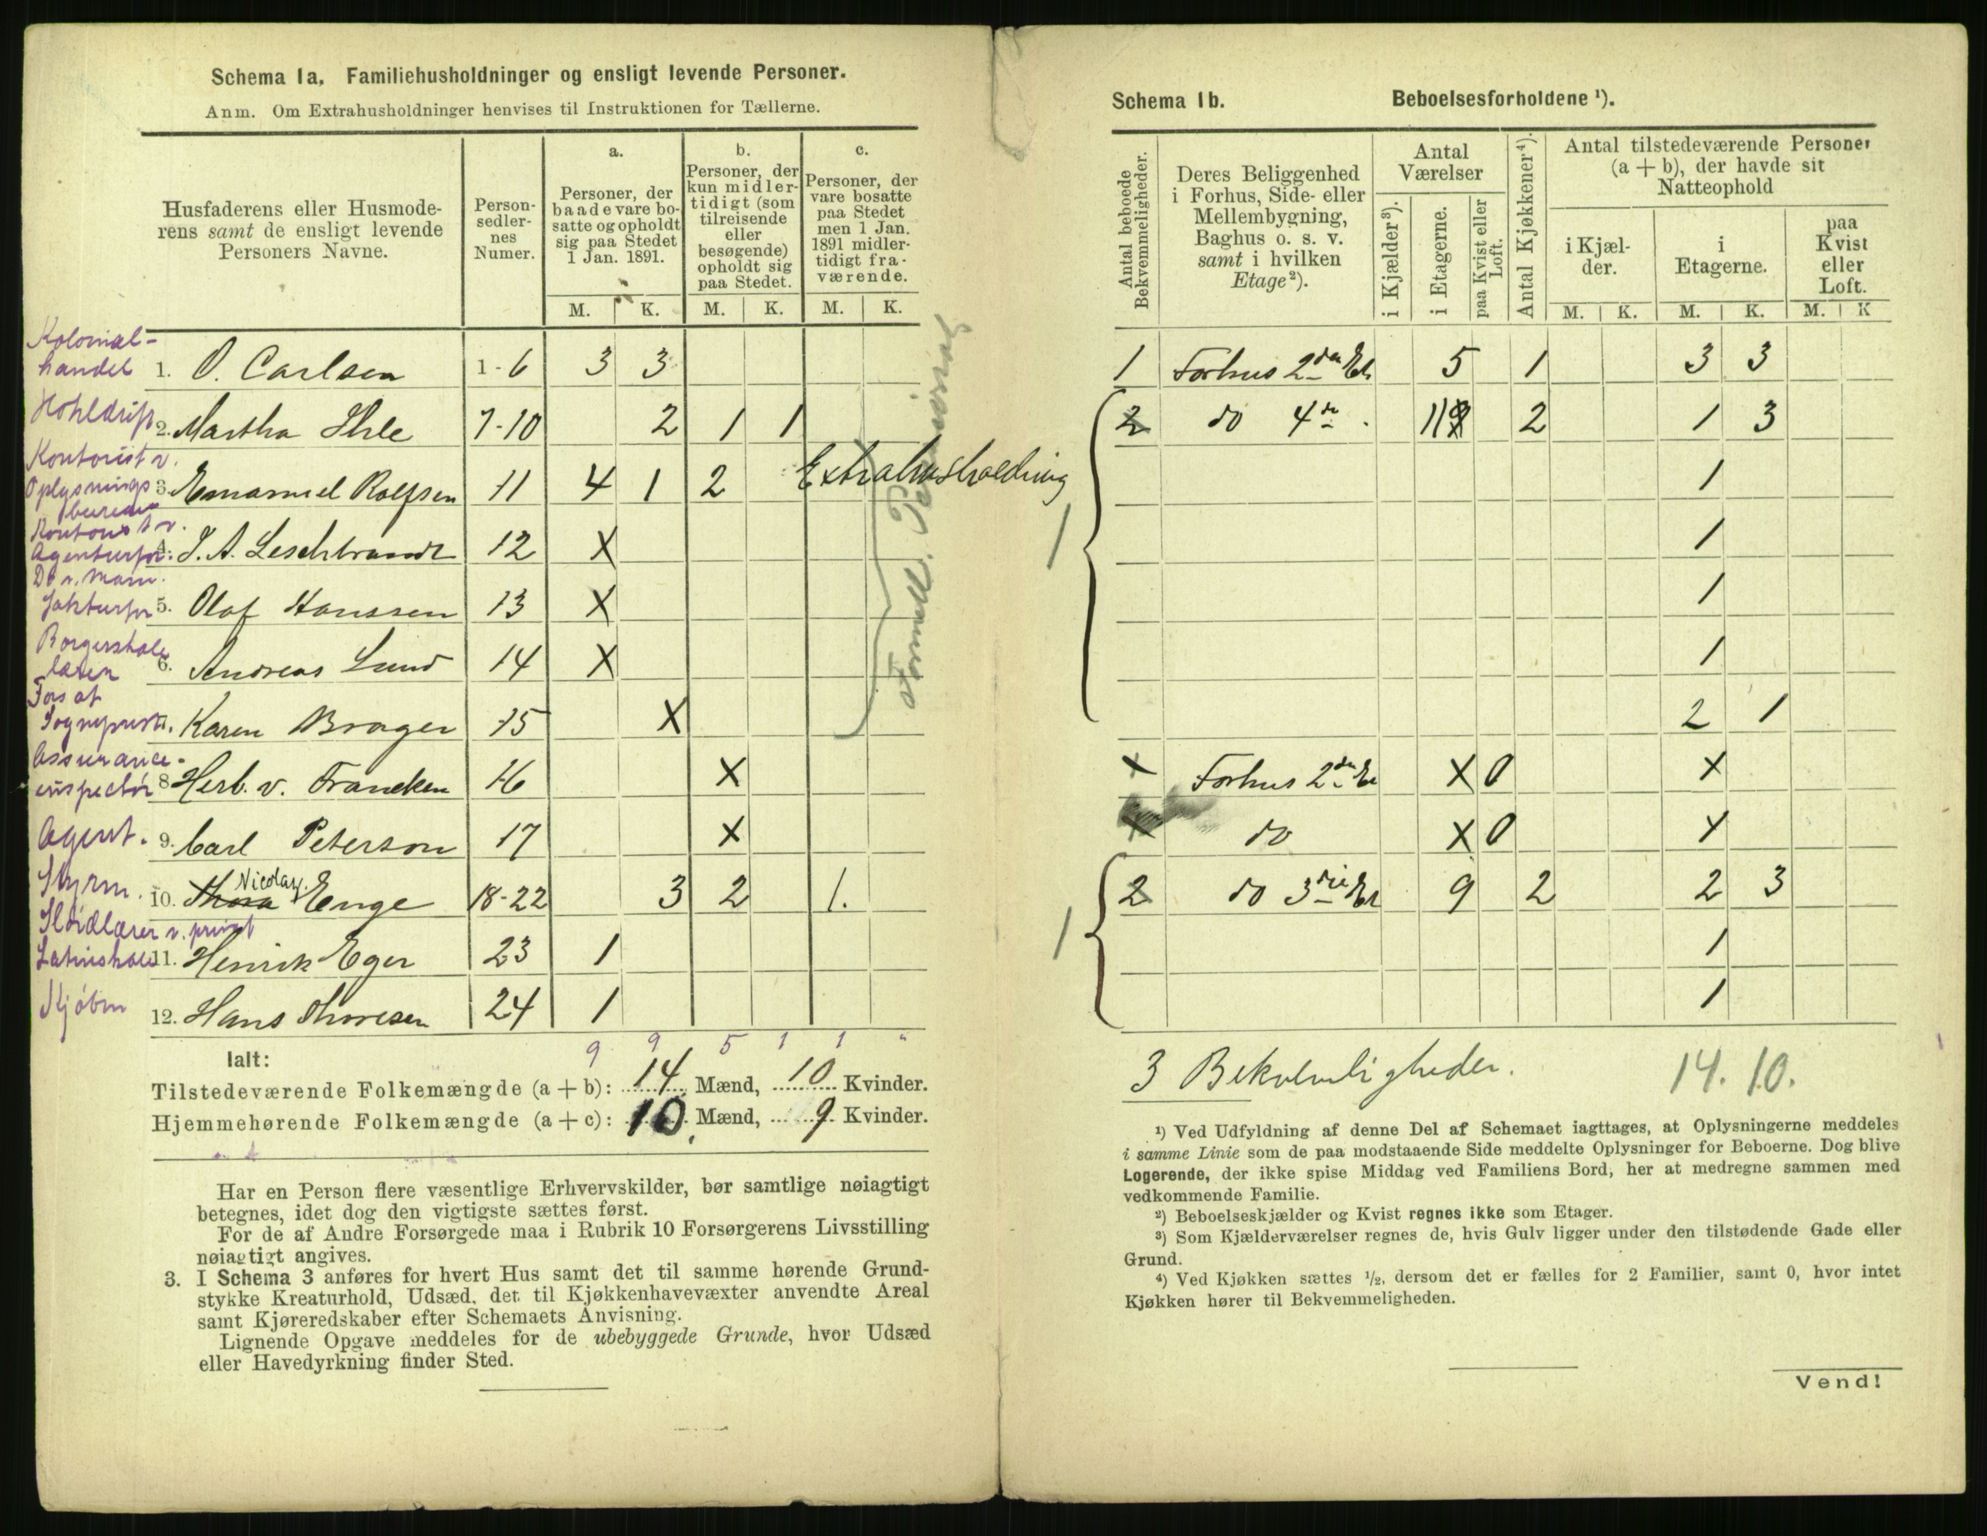 Schema 1a. Familiehusholdninger og ensligt levende Personer.
Anm. Om Extrahusholdninger henvises til Instruktionen for Tællerne.
Husfaderens eller Husmoderens samt de ensligt levende Personers Navne.
Personsedlernes Numer.
a.
Personer, der baade vare bosatte og opholdt sig paa Stedet 1 Jan. 1891.
b.
Personer, der kun midlertidigt (som tilreisende eller besøgende) opholdt sig paa Stedet.
c.
Personer, der vare bosatte paa Stedet men 1 Jan. 1891 midlertidigt fraværende.
M. K. M. K. M. K.
Kolonial-
handel 1. O. Carlsen 1-6 3 3
2. Martha Ihle 7-10 2 1 1
Kontorist v.
Oplysnings 3. Emanuel Rolfsen 11 4 1 2 Extrahusholdning
bureau
Kontorist v.
Agenturfor. 4. J. A. Leschbrandt 12 X
Do v. Manu.
fakturfor 5. Olaf Hanssen 13 X
Borgerskole
lærer 6. Andreas Lund 14 X
Fors af
Sogneprest. Karen Brager 15 X
Assurance-
inspectør 8 Herb. v. Francken 16 X
Agent. 9. Carl Peterson 17 X
Styrm. 10. Thora Nicolay. Enge 18-22 3 2 1.
Sløidlærer v. privat
Latinskole 11. Henrik Eger 23 1
Kjøbm 12. Hans Thoresen 24 1
Formell. Pensionat
Ialt: 9 9 5 1 1 "
Tilstedeværende Folkemængde (a + b): 14 Mænd, 10 Kvinder.
Hjemmehørende Folkemængde (a + c): 10. Mænd, 9 Kvinder.
Har en Person flere væsentlige Erhvervskilder, bør samtlige nøiagtigt
betegnes, idet dog den vigtigste sættes først.
For de af Andre Forsørgede maa i Rubrik 10 Forsørgerens Livsstilling
nøiagtigt angives.
3. I Schema 3 anføres for hvert Hus samt det til samme hørende Grund-
stykke Kreaturhold, Udsæd, det til Kjøkkenhavevæxter anvendte Areal
samt Kjøreredskaber efter Schemaets Anvisning.
Lignende Opgave meddeles for de ubebyggede Grunde, hvor Udsæd
eller Havedyrkning finder Sted.
Schema 1b. Beboelsesforholdene ¹).
Antal beboede Bekvemmeligheder.
Deres Beliggenhed i Forhus, Side- eller Mellembygning, Baghus o. s. v. samt i hvilken Etage²).
Antal Værelser
i Kjælder³).
i Etagerne.
paa Kvist eller Loft.
Antal Kjøkkener⁴).
Antal tilstedeværende Personer (a + b), der havde sit Natteophold
i Kjælder.
i Etagerne.
paa Kvist eller Loft.
M. K. M. K. M. K
1 Forhus 2den Et. 5 1 3 3
2 do 4de . 11 2 1 3
1
1 1
1
1
2 1
X Forhus 2den Et X 0 X
X do X 0 X
2 do 3die Et 9 2 2 3
1 1
1
3 Bekvemligheder. 14. 10.
¹) Ved Udfyldning af denne Del af Schemaet iagttages, at Oplysningerne meddeles
i samme Linie som de paa modstaaende Side meddelte Oplysninger for Beboerne. Dog blive
Logerende, der ikke spise Middag ved Familiens Bord, her at medregne sammen med
vedkommende Familie.
²) Beboelseskjælder og Kvist regnes ikke som Etager.
³) Som Kjælderværelser regnes de, hvis Gulv ligger under den tilstødende Gade eller
Grund.
⁴) Ved Kjøkken sættes ½, dersom det er fælles for 2 Familier, samt 0, hvor intet
Kjøkken hører til Bekvemmeligheden.
Vend!